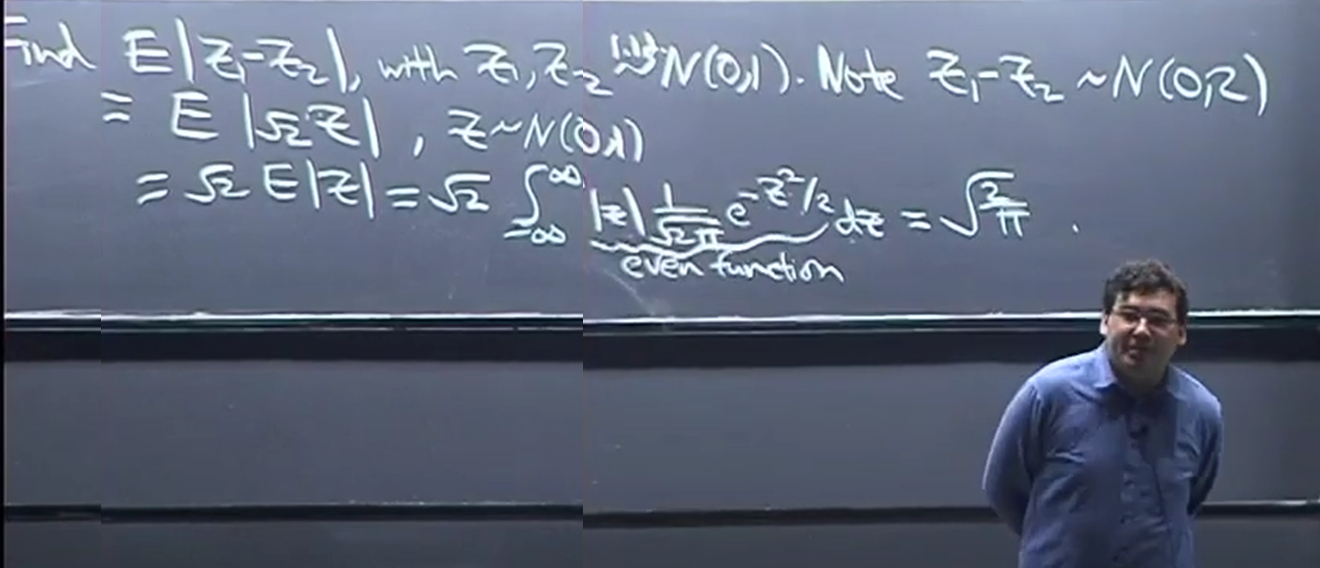 Find E|Z₁-Z₂|, with Z₁, Z₂ i.i.d. ~ N(0,1). Note Z₁-Z₂ ~ N(0,2)
= E|√2 Z|, Z~N(0,1)
= √2 E|Z| = √2 ∫_{-∞}^{∞} |z| 1/√2π e^{-z²/2} dz = √(2/π) .
even function